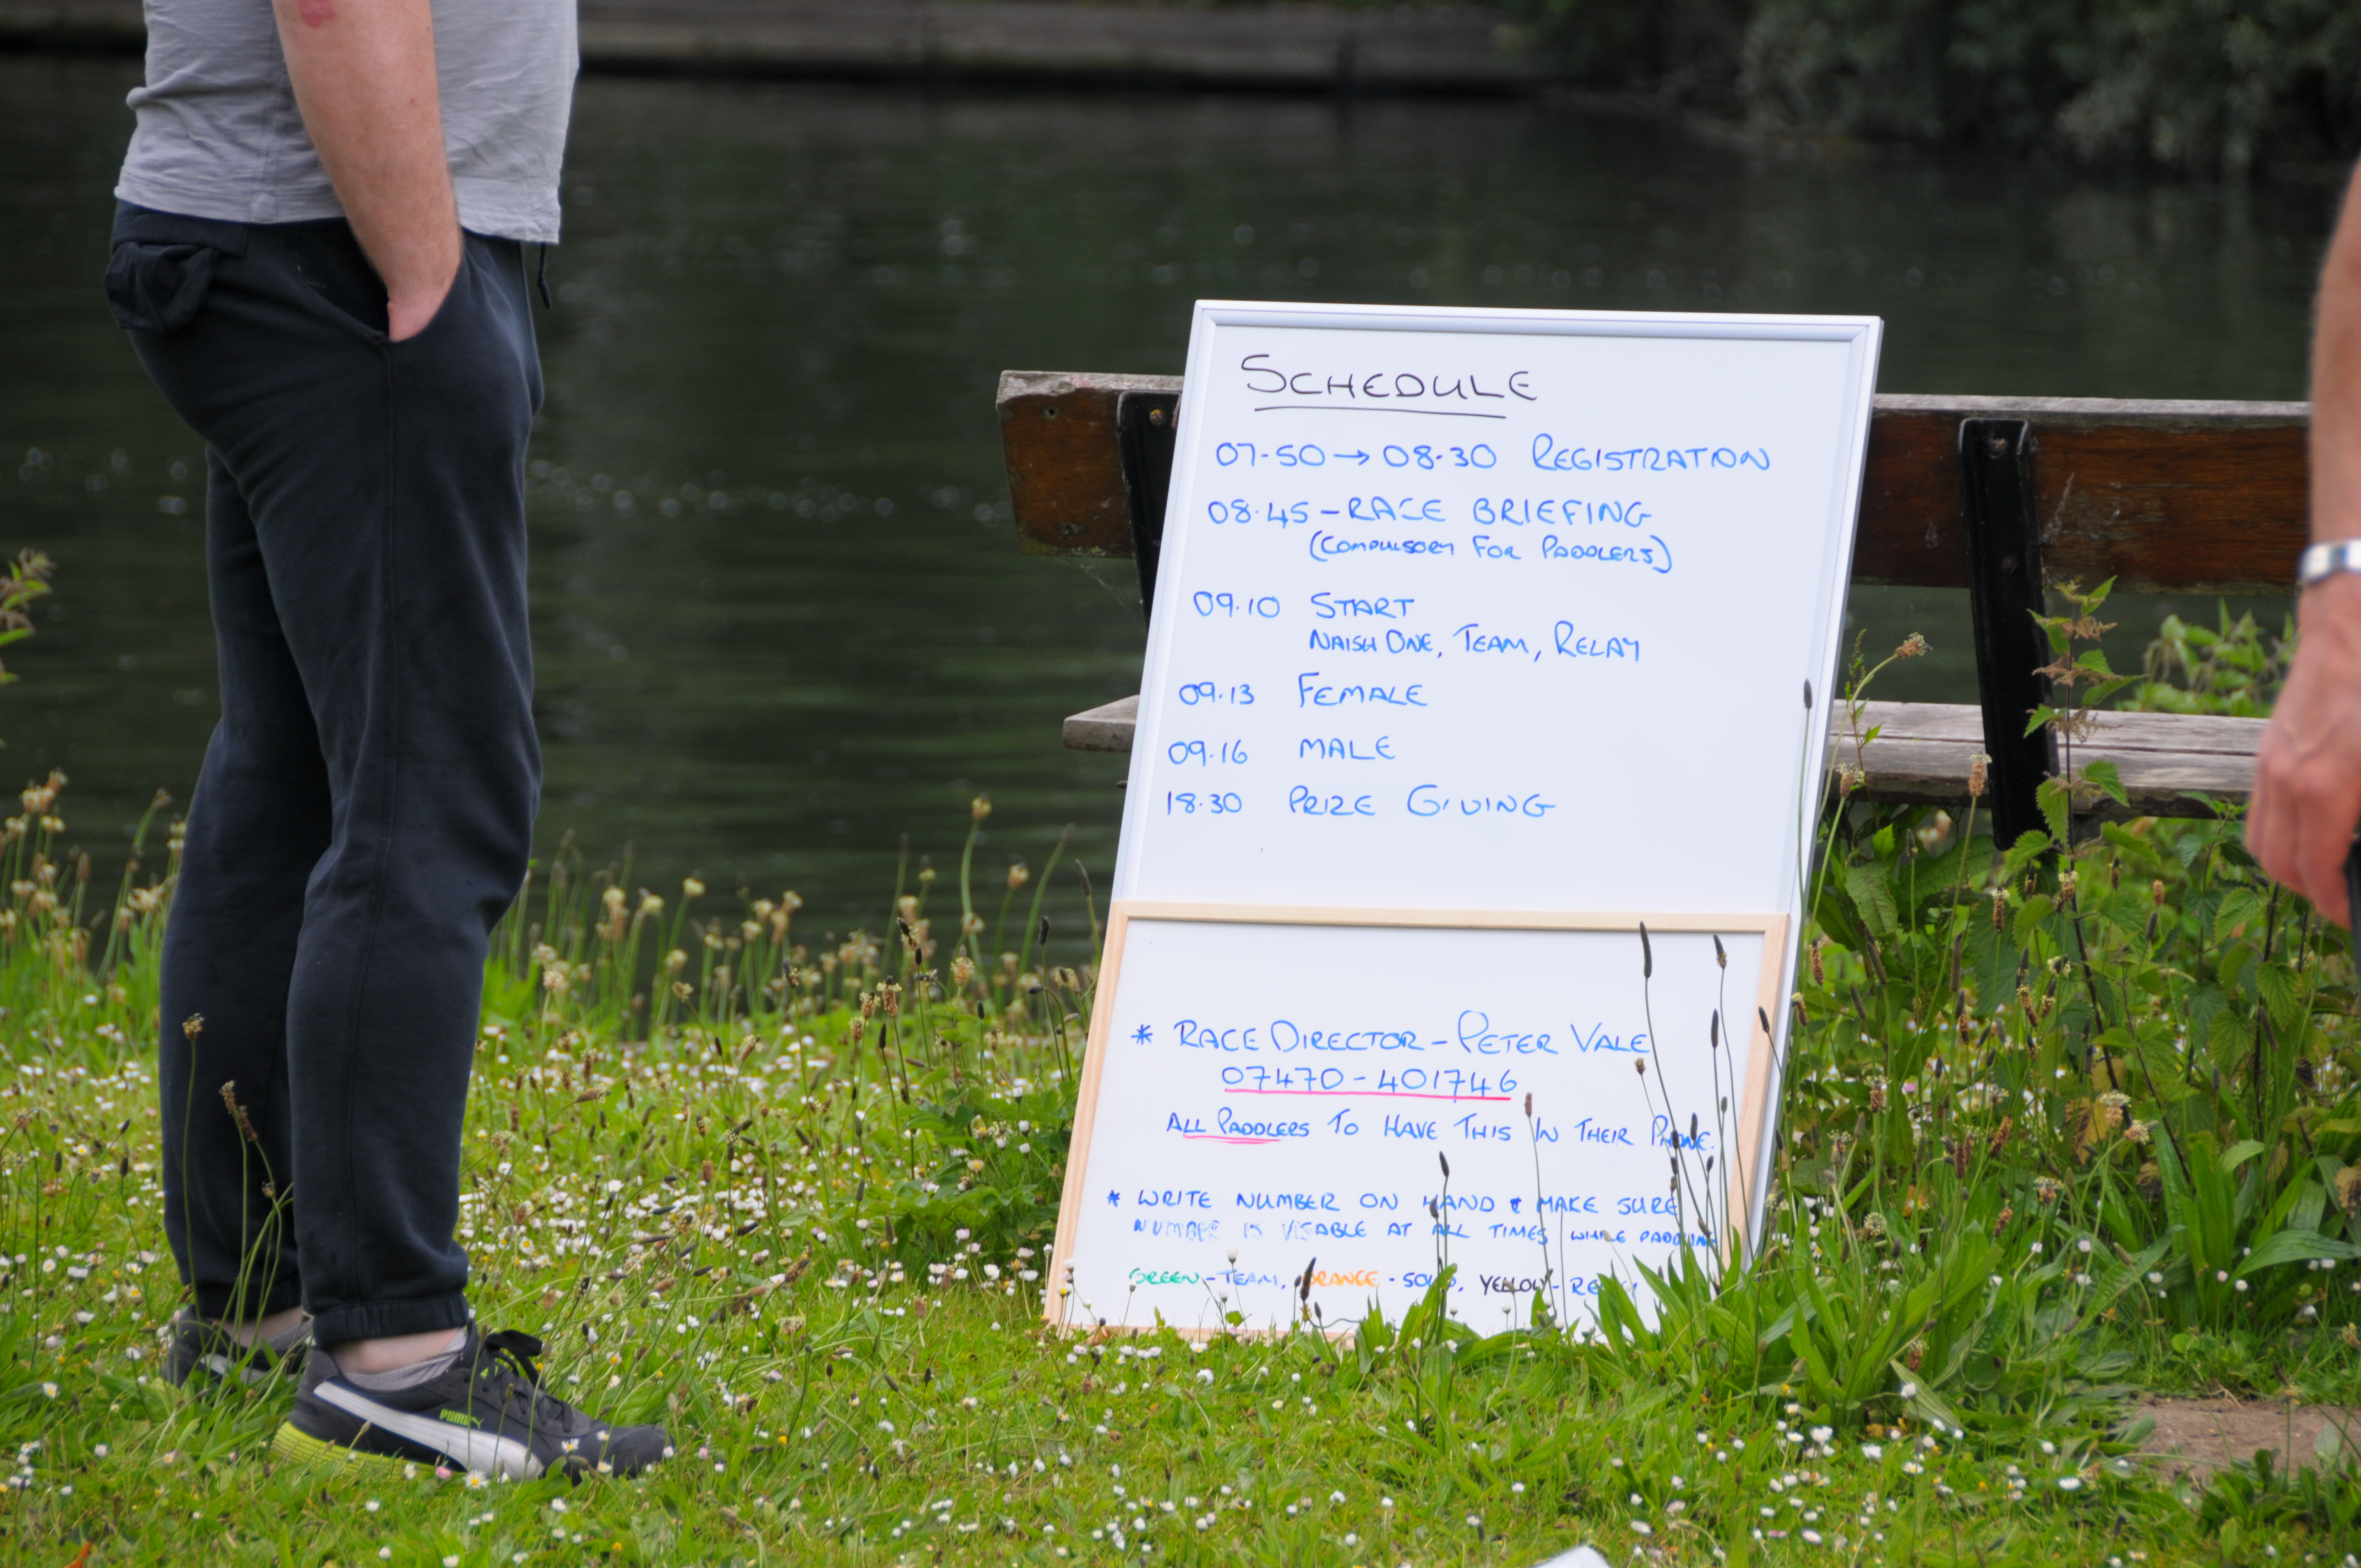 SCHEDULE
07.50 → 08.30 REGISTRATION
08.45 - RACE BRIEFING
(COMPULSORY FOR PADDLERS)
09.10 START
NAISH ONE, TEAM, RELAY
09.13 FEMALE
09.16 MALE
18.30 PRIZE GIVING
* RACE DIRECTOR - PETER VALE
07470-401746
ALL PADDLERS TO HAVE THIS IN THEIR PHONE.
* WRITE NUMBER ON HAND & MAKE SURE
NUMBER IS VISABLE AT ALL TIMES WHILE PADDLING
GREEN - TEAM, ORANGE - SOLO, YELLOW - RELAY
PUMA